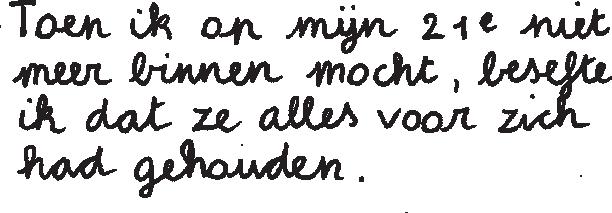 Toen ik op mijn 21e niet
meer binnen mocht, besefte
ik dat ze alles voor zich
had gehouden.